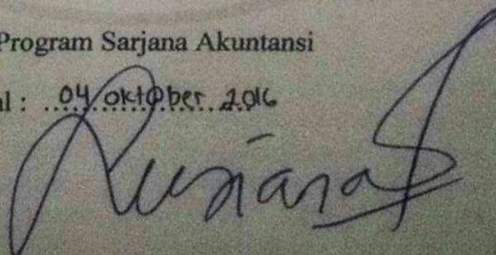 Program Sarjana Akuntansi
al : ....04 oktober 2016